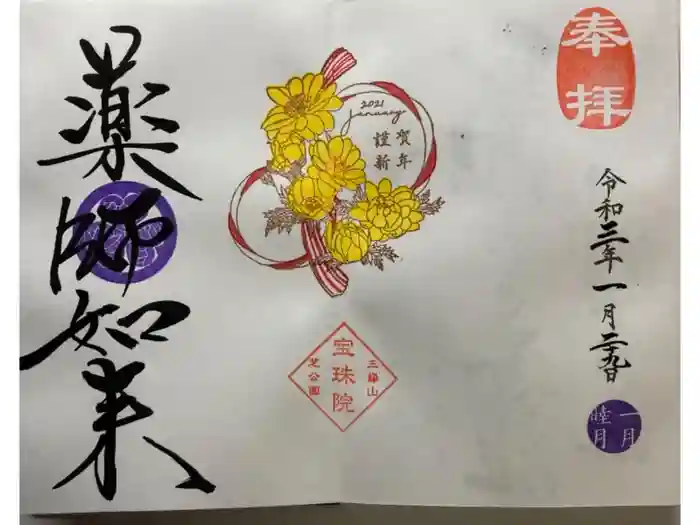 奉拝
令和三年一月二十九日
一月
睦月
2021
January
謹賀
新年
三縁山
宝珠院
芝公園
薬師如来